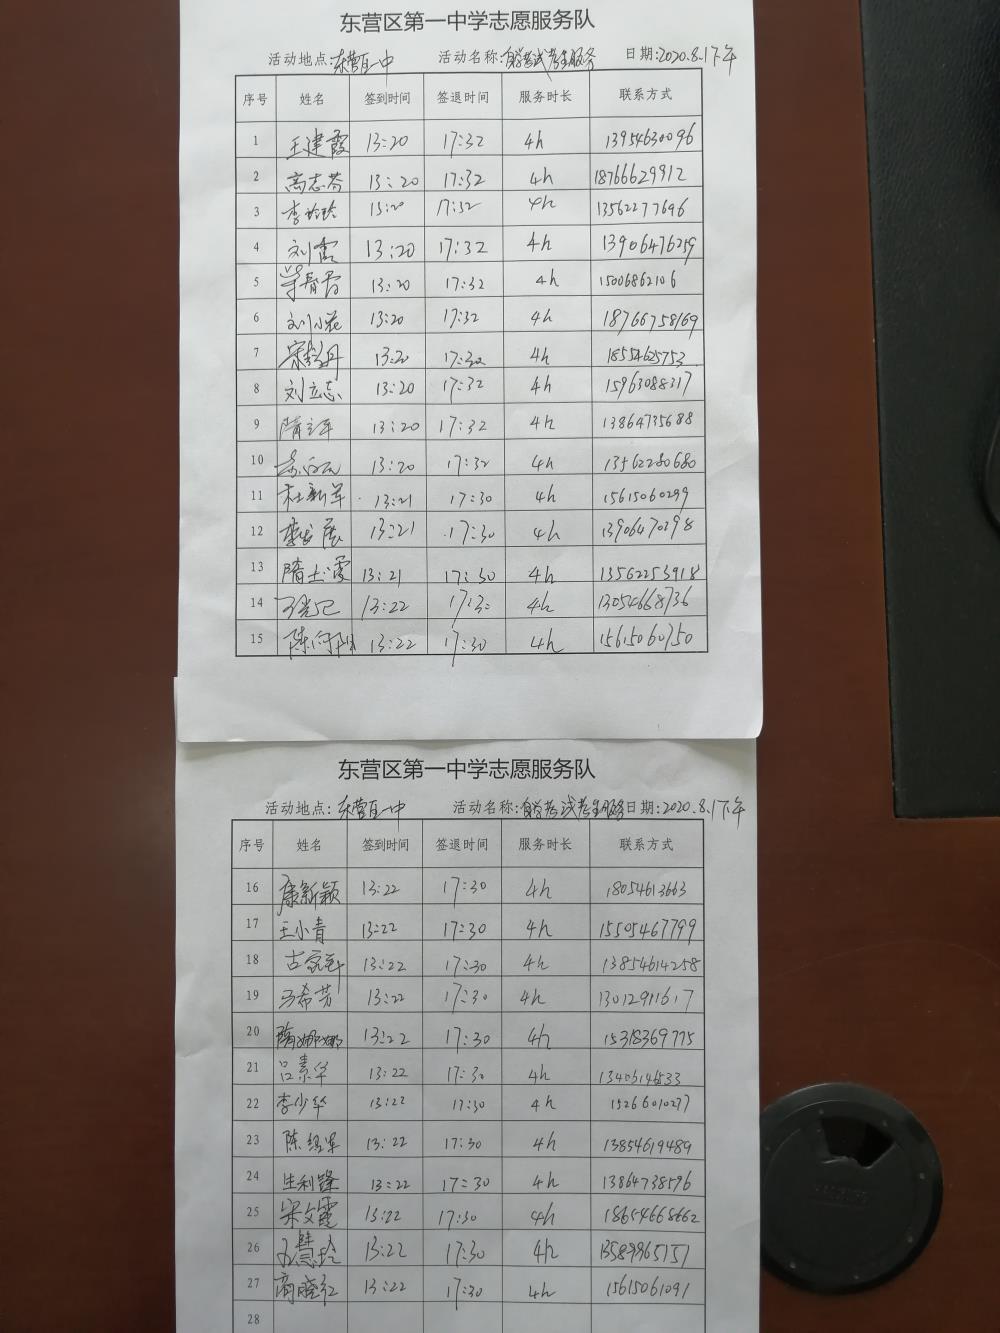 东营区第一中学志愿服务队
活动地点:东营区一中 活动名称:自学考试考生服务 日期:2020.8.1下午
序号 姓名 签到时间 签退时间 服务时长 联系方式
1 王建霞 13:20 17:32 4h 13954630096
2 高志芬 13:20 17:32 4h 18766629912
3 李玲玲 13:20 17:32 4h 13562277696
4 刘霞 13:20 17:32 4h
5 13:20 17:32 4h 15006862106
6 刘小花 13:20 17:32 4h 18766758169
7 13:20 17:32 4h 18554625753
8 刘立志 13:20 17:32 4h 15963088317
9 隋立军 13:20 17:32 4h 13864735688
10 13:20 17:32 4h 13562280680
11 杜新军 13:21 17:30 4h 15615060299
12 13:21 17:30 4h 13906470298
13 13:21 17:30 4h 13562253918
14 13:22 17:30 4h 13054668736
15 13:22 17:30 4h 15615060750
东营区第一中学志愿服务队
活动地点:东营区一中 活动名称:自学考试考生服务 日期:2020.8.1下午
序号 姓名 签到时间 签退时间 服务时长 联系方式
16 康新颖 13:22 17:30 4h 18054613663
17 王小青 13:22 17:30 4h 15505467799
18 13:22 17:30 4h 13854614258
19 13:22 17:30 4h 13012911617
20 隋娜娜 13:22 17:30 4h 15318369775
21 吕素华 13:22 17:30 4h
22 李少华 13:22 17:30 4h 15266010277
23 13:22 17:30 4h 13854619489
24 生利锋 13:22 17:30 4h 13864738596
25 宋文霞 13:22 17:30 4h 18654668662
26 13:22 17:30 4h 13589965757
27 商晓红 13:22 17:30 4h 15615061091
28